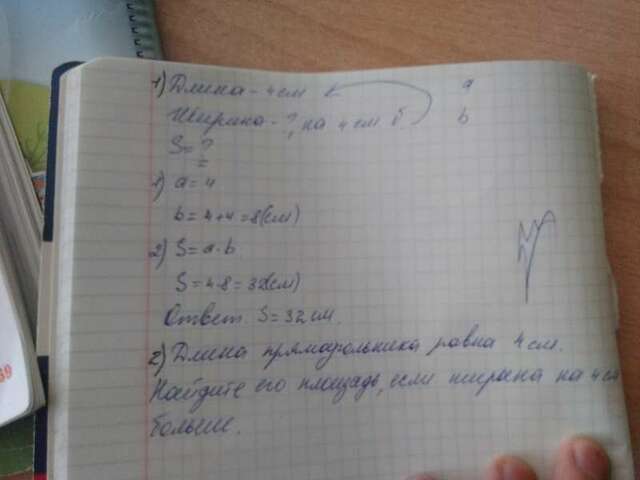 1) Длина - 4 см a
Ширина - ?, на 4 см б. b
S = ?
1) a = 4
b = 4+4 = 8(см)
2) S = a·b.
S = 4·8 = 32(см)
Ответ. S = 32 см.
2) Длина прямоугольника равна 4 см.
Найдите его площадь, если ширина на 4 см
больше.
59